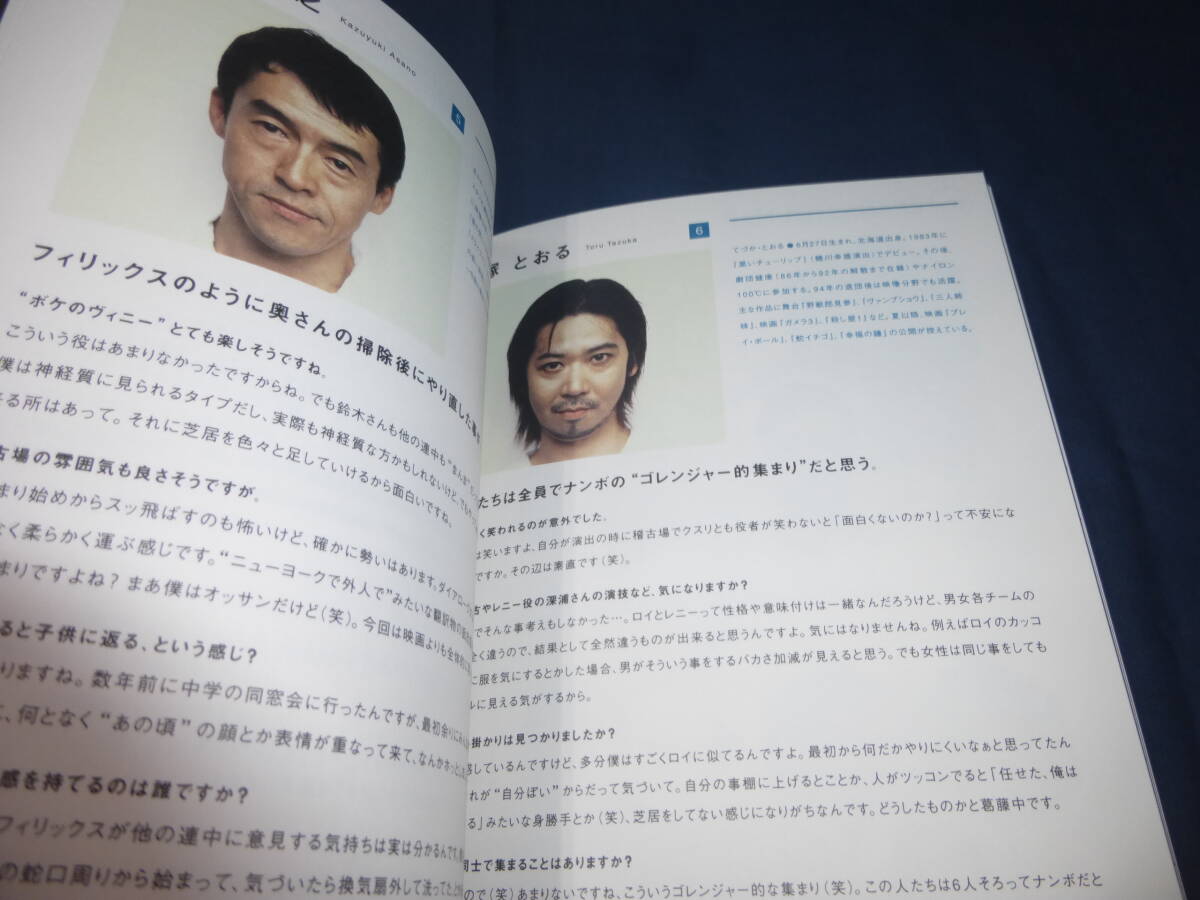 Kazuyuki Asano
5
フィリックスのように奥さんの掃除後にやり直した事が
“ボケのヴィニー”とても楽しそうですね。
こういう役はあまりなかったですからね。でも鈴木さんも他の連中も“まんま”
僕は神経質に見られるタイプだし、実際も神経質な方かもしれないけど、でも
る所はあって。それに芝居を色々と足していけるから面白いですね。
古場の雰囲気も良さそうですが。
まり始めからスッ飛ばすのも怖いけど、確かに勢いはあります。ダイアローグ
なく柔らかく運ぶ感じです。“ニューヨークで外人で”みたいな翻訳物の
まりですよね？まあ僕はオッサンだけど（笑）。今回は映画よりも全体的に
ると子供に返る、という感じ？
りますね。数年前に中学の同窓会に行ったんですが、最初余りに
、何となく“あの頃”の顔とか表情が重なって来て、なんかホッと
感を持てるのは誰ですか？
フィリックスが他の連中に意見する気持ちは実は分かるんです。
の蛇口周りから始まって、気づいたら換気扇外して洗ってた
塚 とおる
Toru Tezuka
6
てづか・とおる●6月27日生まれ、北海道出身。1983年に
『黒いチューリップ』（蜷川幸雄演出）でデビュー。その後、
劇団健康（86年から92年の解散まで在籍）やナイロン
100℃に参加する。94年の退団後は映像分野でも活躍。
主な作品に舞台『野獣郎見参』、『ヴァンプショウ』、『三人姉
妹』、映画『ガメラ3』、『殺し屋1』など。夏以降、映画『プレ
イ・ボール』、『蛇イチゴ』、『幸福の鐘』の公開が控えている。
たちは全員でナンボの“ゴレンジャー的集まり”だと思う。
く笑われるのが意外でした。
は笑いますよ、自分が演出の時に稽古場でクスリとも役者が笑わないと「面白くないのか？」って不安にな
ですか。その辺は素直です（笑）。
古やレニー役の深浦さんの演技など、気になりますか？
でそんな事考えもしなかった…。ロイとレニーって性格や意味付けは一緒なんだろうけど、男女各チームの
く違うので、結果として全然違うものが出来ると思うんですよ。気にはなりませんね。例えばロイのカッコ
に服を気にするとかした場合、男がそういう事をするバカさ加減が見えると思う。でも女性は同じ事をしても
ルに見える気がするから。
掛かりは見つかりましたか？
感しているんですけど、多分僕はすごくロイに似てるんですよ。最初から何だかやりにくいなぁと思ってたん
れが“自分ぽい”からだって気づいて。自分の事棚に上げるとことか、人がツッコンでると「任せた、俺は
る」みたいな身勝手とか（笑）、芝居をしてない感じになりがちなんです。どうしたものかと葛藤中です。
同士で集まることはありますか？
ので（笑）あまりないですね、こういうゴレンジャー的な集まり（笑）。この人たちは6人そろってナンボだと